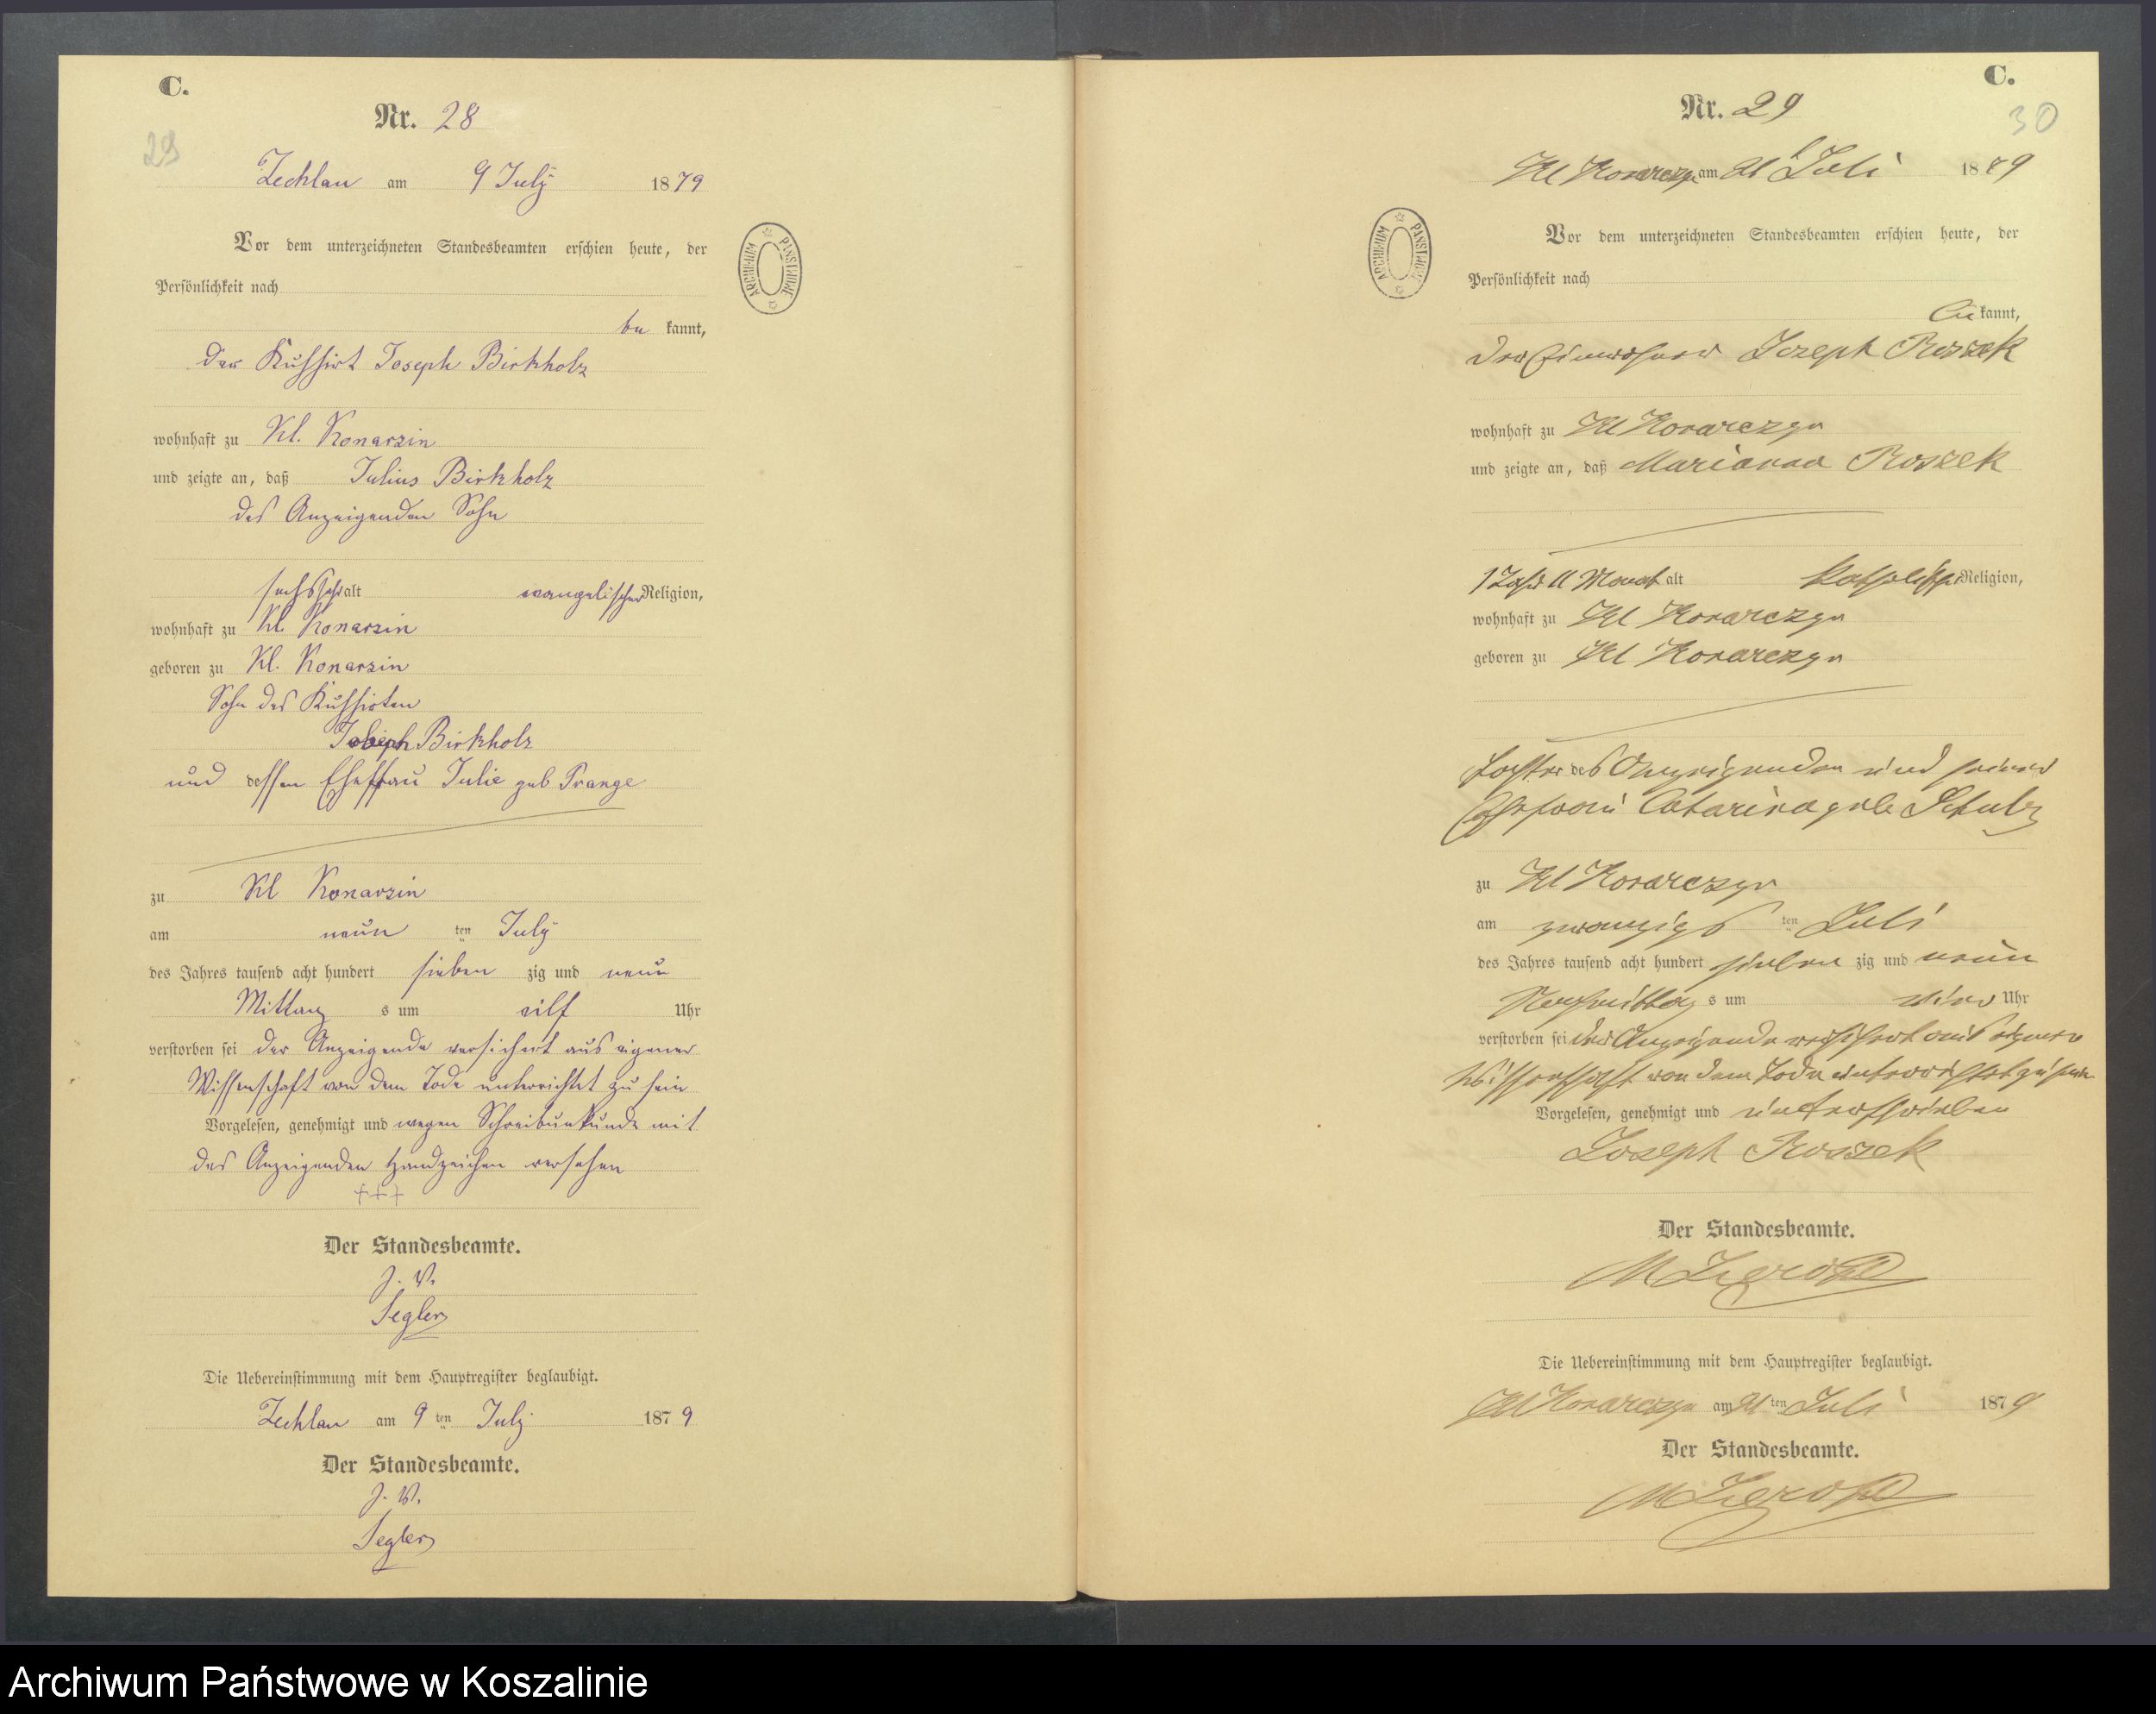 C.
Nr. 28
29
Zechlau am 9 July 1879
Vor dem unterzeichneten Standesbeamten erschien heute, der
Persönlichkeit nach
be kannt,
der Kuhhirt Joseph Birkholz
wohnhaft zu Kl. Konarzin
und zeigte an, daß Julius Birkholz
des Anzeigenden Sohn
alt evangelischer Religion,
wohnhaft zu Kl. Konarzin
geboren zu Kl. Konarzin
Sohn des Kuhhirten
Joseph Birkholz
und dessen Ehefrau Julie geb Prange
zu Kl Konarzin
am neun ten July
des Jahres tausend acht hundert sieben zig und neun
Mittag s um eilf Uhr
verstorben sei der Anzeigende versichert aus eigener
Wissenschaft von dem Tode unterrichtet zu sein
Vorgelesen, genehmigt und wegen Schreibunkunde mit
des Anzeigenden Handzeichen versehen
+++
Der Standesbeamte.
J. V.
Segler
Die Uebereinstimmung mit dem Hauptregister beglaubigt.
Zechlau am 9 ten July 1879
Der Standesbeamte.
J. V.
Segler
ARCHIWUM PAŃSTWOWE
C.
Nr. 29
30
Kl Konarczyn am 21 Juli 1879
Vor dem unterzeichneten Standesbeamten erschien heute, der
Persönlichkeit nach
be kannt,
der Einwohner Joseph Roszek
wohnhaft zu Kl Konarczyn
und zeigte an, daß Marianna Roszek
1 Jahr 11 Monat alt katholischer Religion,
wohnhaft zu Kl Konarczyn
geboren zu Kl Konarczyn
Tochter des Anzeigenden und seiner
Ehefrau Catarina geb Schulz
zu Kl Konarczyn
am zwanzigs ten Juli
des Jahres tausend acht hundert sieben zig und neun
Nachmittag s um vier Uhr
verstorben sei der Anzeigende versichert aus eigener
Wissenschaft von dem Tode unterrichtet zu sein
Vorgelesen, genehmigt und unterschrieben
Joseph Roszek
Der Standesbeamte.
Die Uebereinstimmung mit dem Hauptregister beglaubigt.
Kl Konarczyn am 21 ten Juli 1879
Der Standesbeamte.
ARCHIWUM PAŃSTWOWE
Archiwum Państwowe w Koszalinie